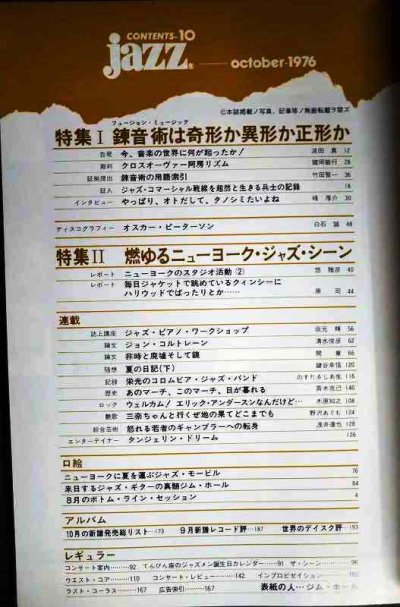 CONTENTS-10
jazz
october-1976
©本誌掲載ノ写真、記事等ノ無断転載ヲ禁ズ
フュージョン・ミュージック
特集Ⅰ 錬音術は奇形か異形か正形か
告発 今、音楽の世界に何が起ったか! 12
裁判 クロスオーヴァー阿房リズム 諸岡敏行 28
証拠提出 錬音術の用語索引 竹田賢一 36
証人 ジャズ・コマーシャル戦線を超然と生きる兵士の記録 18
インタビュー やっぱり、オトだして、タノシミたいよね 峰厚介 30
ディスコグラフィー オスカー・ピーターソン 白石 48
特集Ⅱ 燃ゆるニューヨーク・ジャズ・シーン
レポート ニューヨークのスタジオ活動 ② 悠雅彦 40
レポート 毎日ジャケットで眺めているクィンシーに
ハリウッドでばったりとか…… 原 司 44
連載
誌上講座 ジャズ・ピアノ・ワークショップ 56
論文 ジョン・コルトレーン 清水俊彦 62
論文 時と廃墟そして鏡 間章 66
随想 夏の日記(下) 鍵谷幸信 120
記録 栄光のコロムビア・ジャズ・バンド 116
歴史 あのマーチ、このマーチ、日が暮れる 青木克巳 140
ロック ウェルカム! エリック・アンダースンなんだけど… 108
聴歌 三奈ちゃんと行くぜ地の果てどこまでも 134
総合芸術 怒れる若者のギャンブラーへの転身
エンターテイナー タンジェリン・ドリーム 126
口絵
ニューヨークに夏を運ぶジャズ・モービル 76
来日するジャズ・ギターの真髄ジム・ホール 84
8月のボトム・ライン・セッション 4
アルバム
10月の新譜発売総リスト…173 9月新譜レコード評…187 世界のデイスク評…193
レギュラー
コンサート案内……92 てんびん座のジャズメン誕生日カレンダー……91 ザ・シーン……96
ウエスト・コア……110 コンサート・レビュー……142 インプロビゼイション……160
ラスト・コーラス……167 広告索引……167 表紙の人…ジム・ホール